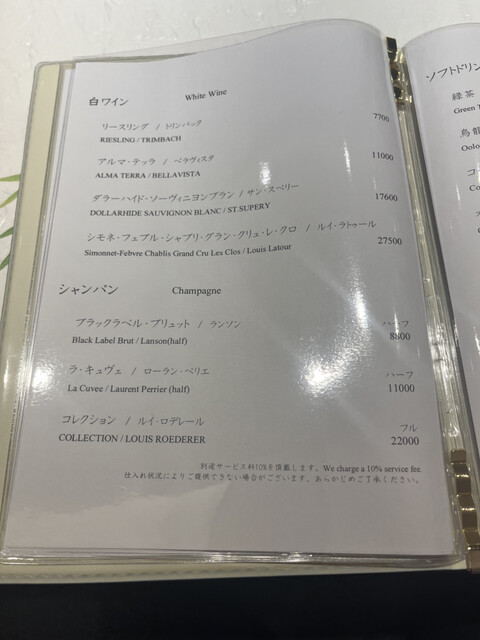 白ワイン White Wine
リースリング / トリンバック 7700
RIESLING / TRIMBACH
アルマ・テッラ / ベラヴィスタ 11000
ALMA TERRA / BELLAVISTA
ダラーハイド・ソーヴィニヨンブラン / サン・スペリー 17600
DOLLARHIDE SAUVIGNON BLANC / ST.SUPERY
シモネ・フェブル・シャブリ・グラン・クリュ・レ・クロ / ルイ・ラトゥール 27500
Simonnet-Febvre Chablis Grand Cru Les Clos / Louis Latour
シャンパン Champagne
ブラックラベル・ブリュット / ランソン ハーフ
Black Label Brut / Lanson(half) 8800
ラ・キュヴェ / ローラン・ペリエ ハーフ
La Cuvee / Laurent Perrier (half) 11000
コレクション / ルイ・ロデレール フル
COLLECTION / LOUIS ROEDERER 22000
別途サービス料10%を頂戴します。We charge a 10% service fee.
仕入れ状況によりご提供できない場合がございます。あらかじめご了承ください。
ソフトドリン
緑茶
Green T
烏龍
Oolo
コ
Co